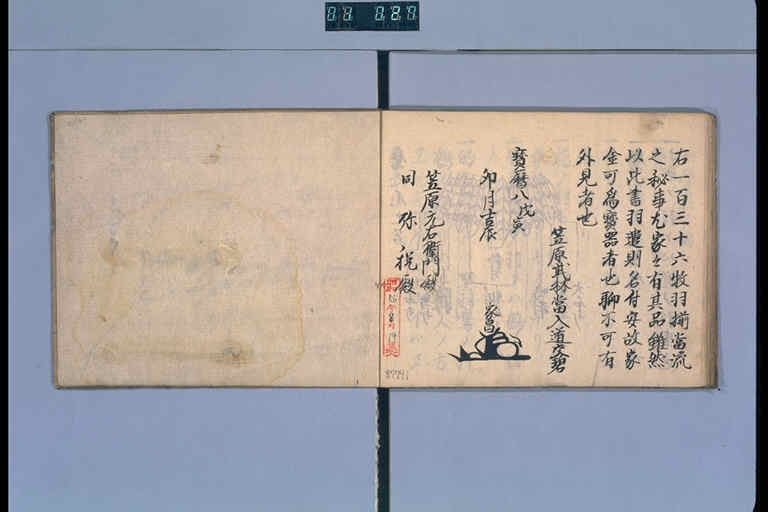 右一百三十六枚羽揃當流
之秘事尤家々有其品雖然
以此書羽遣則名付安故家
金可為寶器者也聊不可有
外見者也
笠原武林當入道
寶暦八戊寅
卯月吉辰
家昌
笠原元右衛門殿
同 弥 殿